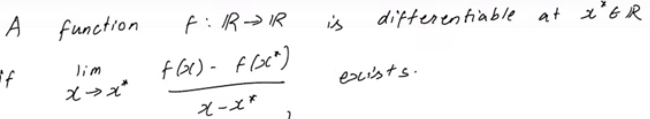 A function f : ℝ → ℝ is differentiable at x* ∈ ℝ
if lim x→x* (f(x) - f(x*)) / (x - x*) exists.